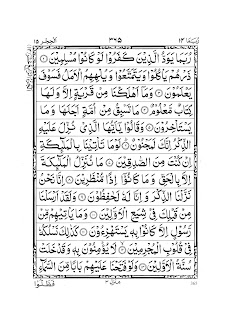 رُبَمَا ١٤ ٣٦٥ الحجر ١٥
رُبَمَا يَوَدُّ الَّذِيْنَ كَفَرُوْا لَوْ كَانُوْا مُسْلِمِيْنَ ۝
ذَرْهُمْ يَاْكُلُوْا وَيَتَمَتَّعُوْا وَيُلْهِهِمُ الْاَمَلُ فَسَوْفَ
يَعْلَمُوْنَ ۝ وَمَاۤ اَهْلَكْنَا مِنْ قَرْيَةٍ اِلَّا وَلَهَا
كِتَابٌ مَّعْلُوْمٌ ۝ مَا تَسْبِقُ مِنْ اُمَّةٍ اَجَلَهَا وَمَا
يَسْتَاْخِرُوْنَ ۝ وَقَالُوْا يٰۤاَيُّهَا الَّذِيْ نُزِّلَ عَلَيْهِ
الذِّكْرُ اِنَّكَ لَمَجْنُوْنٌ ۝ لَوْمَا تَاْتِيْنَا بِالْمَلٰۤئِكَةِ
اِنْ كُنْتَ مِنَ الصّٰدِقِيْنَ ۝ مَا نُنَزِّلُ الْمَلٰۤئِكَةَ
اِلَّا بِالْحَقِّ وَمَا كَانُوْۤا اِذًا مُّنْظَرِيْنَ ۝ اِنَّا نَحْنُ
نَزَّلْنَا الذِّكْرَ وَاِنَّا لَهٗ لَحٰفِظُوْنَ ۝ وَلَقَدْ اَرْسَلْنَا
مِنْ قَبْلِكَ فِيْ شِيَعِ الْاَوَّلِيْنَ ۝ وَمَا يَاْتِيْهِمْ مِّنْ
رَّسُوْلٍ اِلَّا كَانُوْا بِهٖ يَسْتَهْزِءُوْنَ ۝ كَذٰلِكَ نَسْلُكُهٗ
فِيْ قُلُوْبِ الْمُجْرِمِيْنَ ۝ لَا يُؤْمِنُوْنَ بِهٖ وَقَدْ خَلَتْ
سُنَّةُ الْاَوَّلِيْنَ ۝ وَلَوْ فَتَحْنَا عَلَيْهِمْ بَابًا مِّنَ السَّمَآءِ
منزل ٣
فَظَلُّوْا